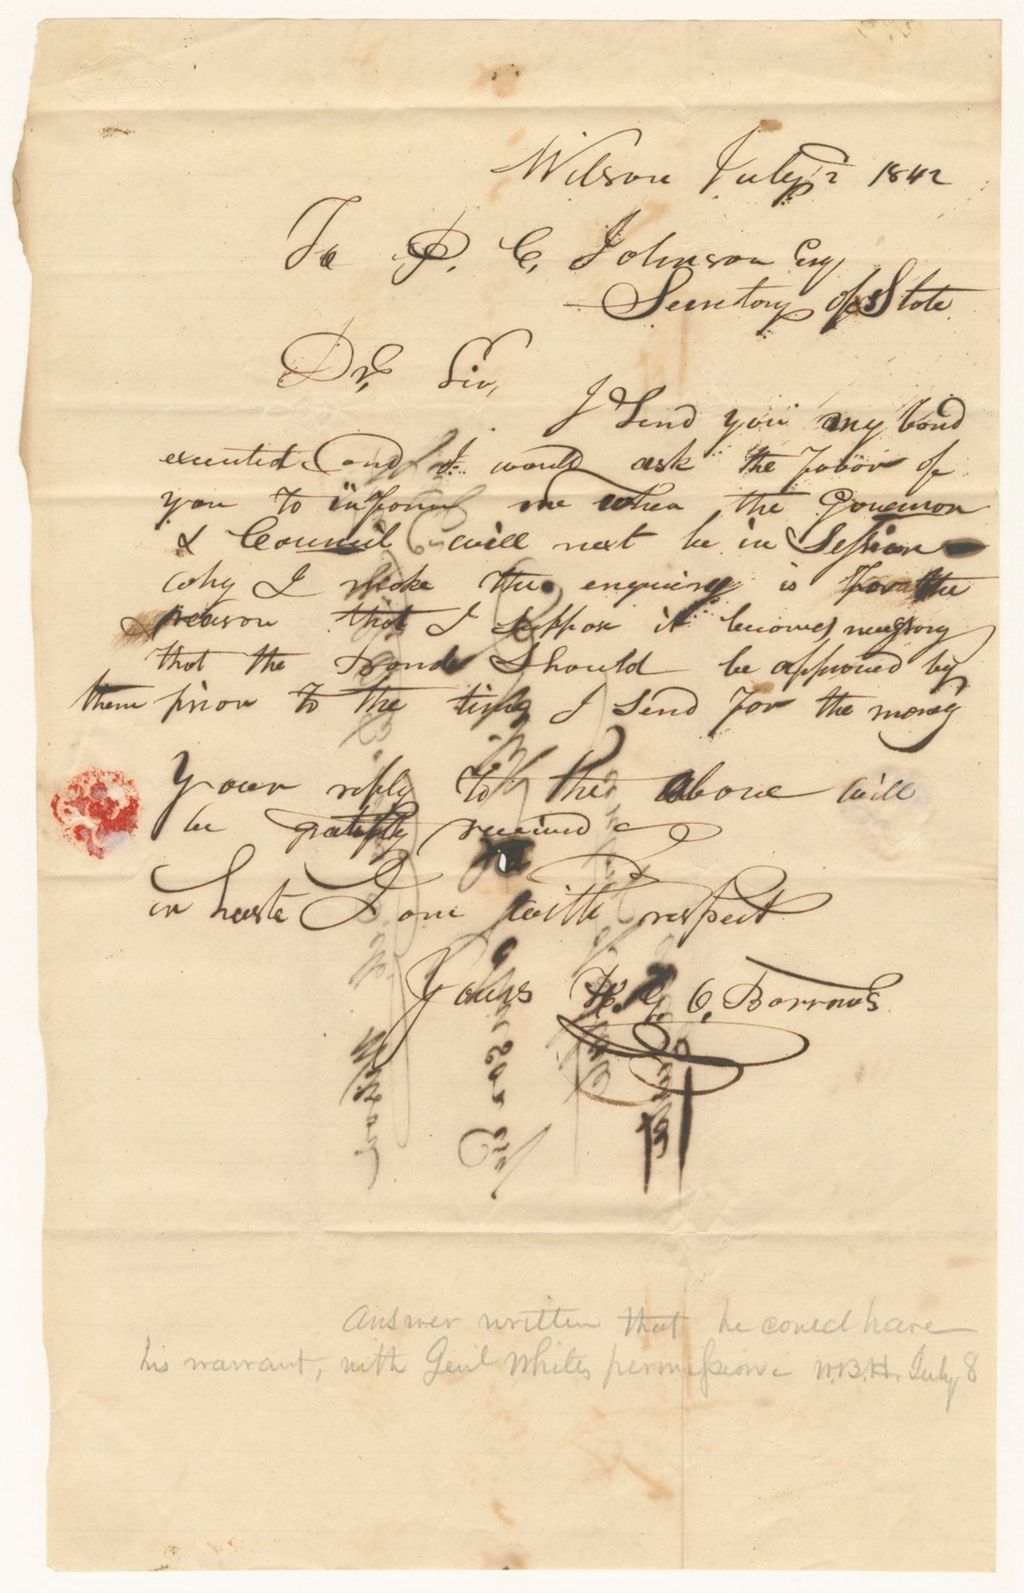 Wilson July 2 1842
To P. C. Johnson Esq
Secretary of State
Dr, Sir,
I Send you my bond
executed and I would ask the favor of
you to inform me when the Governor
& Council will next be in Session
why I make the enquiry is for the
reason that I suppose it becomes necessary
that the Bonds Should be approved by
them prior to the time I send for the money
Your reply to the above will
be gratefly received
in haste I am with respect
Yours K. G. C. Barrows
Answer written that he could have
his warrant, with Genl Whites permission W.B.H. July 8